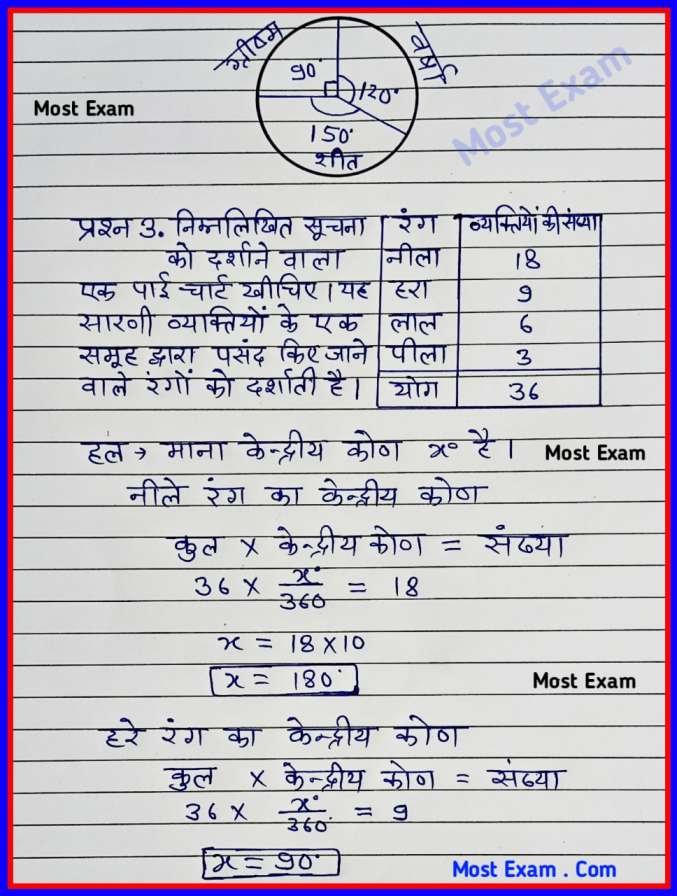 ग्रीष्म
वर्षा
90°
120°
150°
शीत
Most Exam
Most Exam
प्रश्न 3. निम्नलिखित सूचना
को दर्शाने वाला
एक पाई चार्ट खीचिए। यह
सारणी व्यक्तियों के एक
समूह द्वारा पसंद किए जाने
वाले रंगों को दर्शाती है।
रंग व्यक्तियों की संख्या
नीला 18
हरा 9
लाल 6
पीला 3
योग 36
हल → माना केन्द्रीय कोण x° है।
Most Exam
नीले रंग का केन्द्रीय कोण
कुल × केन्द्रीय कोण = संख्या
36 × x°/360 = 18
x = 18×10
x = 180°
Most Exam
हरे रंग का केन्द्रीय कोण
कुल × केन्द्रीय कोण = संख्या
36 × x°/360° = 9
x = 90°
Most Exam . Com